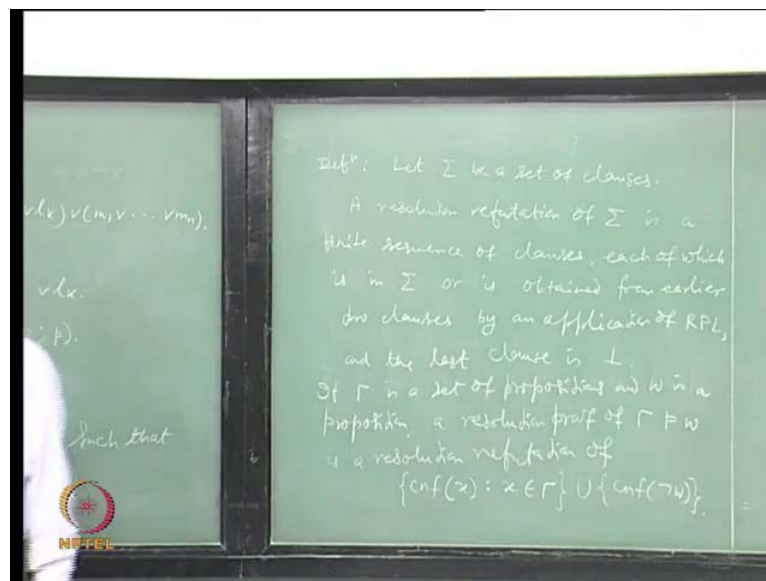 ∨ l_k) ∨ (m_1 ∨ ··· ∨ m_n).
∨ l_k.
; p).
such that
Defⁿ: Let Σ be a set of clauses.
A resolution refutation of Σ is a
finite sequence of clauses, each of which
is in Σ or is obtained from earlier
two clauses by an application of RPL,
and the last clause is ⊥.
If Γ is a set of propositions and w is a
proposition, a resolution proof of Γ ⊨ w
is a resolution refutation of
{cnf(x) : x ∈ Γ} ∪ {cnf(¬w)}.
NPTEL